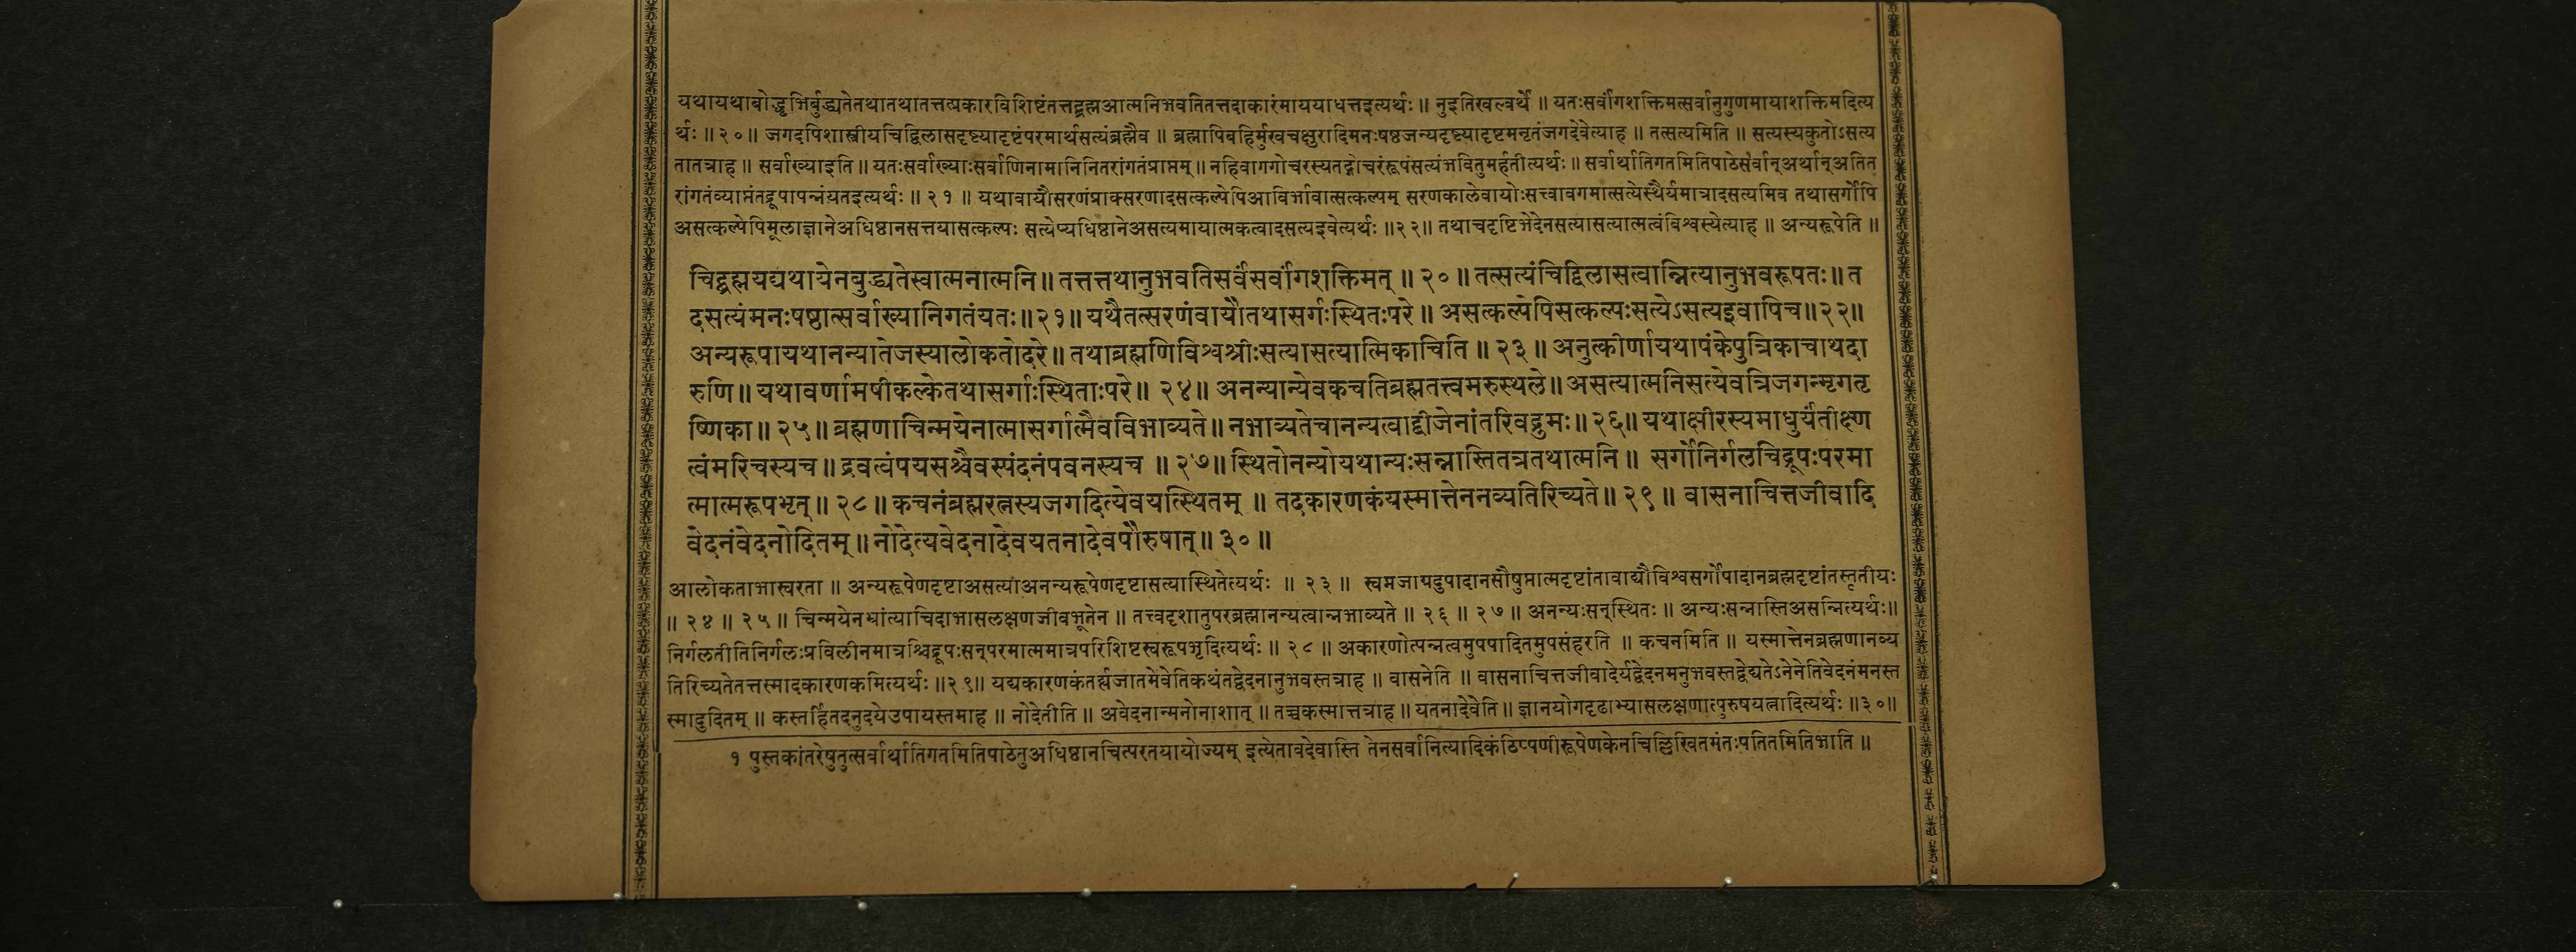 यथायथाबोद्धृभिर्बुद्ध्यतेतथातथातत्तत्प्रकारविशिष्टंतत्तद्ब्रह्मआत्मनिभवतितत्तदाकारंमाययाधत्तइत्यर्थः ॥ नुइतिखल्वर्थे ॥ यतःसर्वांगशक्तिमत्सर्वानुगुणमायाशक्तिमदित्य
र्थः ॥ २० ॥ जगदपिशास्त्रीयचिद्विलासदृष्ट्यादृष्टंपरमार्थसत्यंब्रह्मैव ॥ ब्रह्मापिबहिर्मुखचक्षुरादिमनःषष्ठजन्यदृष्ट्यादृष्टमनृतंजगदेवेत्याह ॥ तत्सत्यमिति ॥ सत्यस्यकुतोऽसत्य
तातत्राह ॥ सर्वाख्याइति ॥ यतःसर्वाख्याःसर्वाणिनामानिनितरांगतंप्राप्तम् ॥ नहिवागगोचरस्यतद्गोचरंरूपंसत्यंभवितुमर्हतीत्यर्थः ॥ सर्वार्थातिगतमितिपाठेसर्वान्अर्थान्अतित
रांगतंव्याप्तंतद्रूपापन्नंयतइत्यर्थः ॥ २१ ॥ यथावायौसरणंप्राक्सरणादसत्कल्पेपिआविर्भावात्सत्कल्पम् सरणकालेवायोःसत्त्वावगमात्सत्येस्थैर्यमात्रादसत्यमिव तथासर्गोपि
असत्कल्पेपिमूलाज्ञानेअधिष्ठानसत्तयासत्कल्पः सत्येप्यधिष्ठानेअसत्यमायात्मकत्वादसत्यइवेत्यर्थः ॥२२॥ तथाचदृष्टिभेदेनसत्यासत्यात्मत्वंविश्वस्येत्याह ॥ अन्यरूपेति ॥
चिद्ब्रह्मयद्यथायेनबुद्ध्यतेस्वात्मनात्मनि॥ तत्तत्तथानुभवतिसर्वंसर्वांगशक्तिमत् ॥ २० ॥ तत्सत्यंचिद्विलासत्वान्नित्यानुभवरूपतः॥ त
दसत्यंमनःषष्ठात्सर्वाख्यानिगतंयतः॥२१॥ यथैतत्सरणंवायौतथासर्गःस्थितःपरे ॥ असत्कल्पेपिसत्कल्पःसत्येऽसत्यइवापिच॥२२॥
अन्यरूपायथानन्यातेजस्यालोकतोदरे॥ तथाब्रह्मणिविश्वश्रीःसत्यासत्यात्मिकाचिति ॥ २३ ॥ अनुत्कीर्णायथापंकेपुत्रिकाचाथदा
रुणि॥ यथावर्णामषीकल्केतथासर्गाःस्थिताःपरे॥ २४॥ अनन्यान्येवकचतिब्रह्मतत्त्वमरुस्थले॥ असत्यात्मनिसत्येवत्रिजगन्मृगतृ
ष्णिका॥ २५॥ ब्रह्मणाचिन्मयेनात्मासर्गात्मैवविभाव्यते॥ नभाव्यतेचानन्यत्वाद्बीजेनांतरिवद्रुमः॥ २६॥ यथाक्षीरस्यमाधुर्यंतीक्ष्ण
त्वंमरिचस्यच॥ द्रवत्वंपयसश्चैवस्पंदनंपवनस्यच ॥ २७॥ स्थितोनन्योयथान्यःसन्नास्तितत्रतथात्मनि॥ सर्गोनिर्गलचिद्रूपःपरमा
त्मात्मरूपभृत्॥ २८॥ कचनंब्रह्मरत्नस्यजगदित्येवयत्स्थितम् ॥ तदकारणकंयस्मात्तेननव्यतिरिच्यते॥ २९॥ वासनाचित्तजीवादि
वेदनंवेदनोदितम्॥ नोदेत्यवेदनादेवयतनादेवपौरुषात्॥ ३०॥
आलोकताभास्वरता ॥ अन्यरूपेणदृष्टाअसत्याअनन्यरूपेणदृष्टासत्यास्थितेत्यर्थः ॥ २३ ॥ स्वप्नजाग्रदुपादानसौषुप्तात्मदृष्टांतावाद्यौविश्वसर्गोपादानब्रह्मदृष्टांतस्तृतीयः
॥ २४ ॥ २५ ॥ चिन्मयेनभ्रांत्याचिदाभासलक्षणजीवभूतेन ॥ तत्त्वदृशातुपरब्रह्मानन्यत्वान्नभाव्यते ॥ २६ ॥ २७ ॥ अनन्यःसन्स्थितः ॥ अन्यःसन्नास्तिअसन्नित्यर्थः॥
निर्गलतीतिनिर्गलःप्रविलीनमात्रश्चिद्रूपःसन्परमात्ममात्रपरिशिष्टस्वरूपभृदित्यर्थः ॥ २८ ॥ अकारणोत्पन्नत्वमुपपादितमुपसंहरति ॥ कचनमिति ॥ यस्मात्तेनब्रह्मणानव्य
तिरिच्यतेतत्तस्मादकारणकमित्यर्थः ॥२९॥ यद्यकारणकंतर्ह्यजातमेवेतिकथंतद्वेदनानुभवस्तत्राह ॥ वासनेति ॥ वासनाचित्तजीवादेर्यद्वेदनमनुभवस्तद्वेद्यतेऽनेनेतिवेदनंमनस्त
स्मादुदितम् ॥ कस्तर्हितदनुदयेउपायस्तमाह ॥ नोदेतीति ॥ अवेदनान्मनोनाशात् ॥ तच्चकस्मात्तत्राह ॥ यतनादेवेति ॥ ज्ञानयोगदृढाभ्यासलक्षणात्पुरुषयत्नादित्यर्थः ॥३०॥
१ पुस्तकांतरेषुतुत्सर्वार्थातिगतमितिपाठेनुअधिष्ठानचित्परतयायोज्यम् इत्येतावदेवास्ति तेनसर्वानित्यादिकंटिप्पणीरूपेणकेनचिल्लिखितमंतःपतितमितिभाति ॥